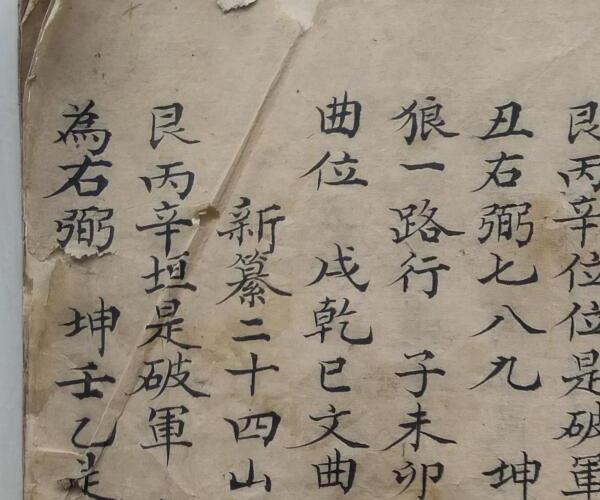 艮丙辛位位是破軍
丑右弼七八九 坤
狼一路行 子未卯
曲位 戌乾巳文曲
新纂二十四山
艮丙辛垣是破軍
為右弼 坤壬乙是